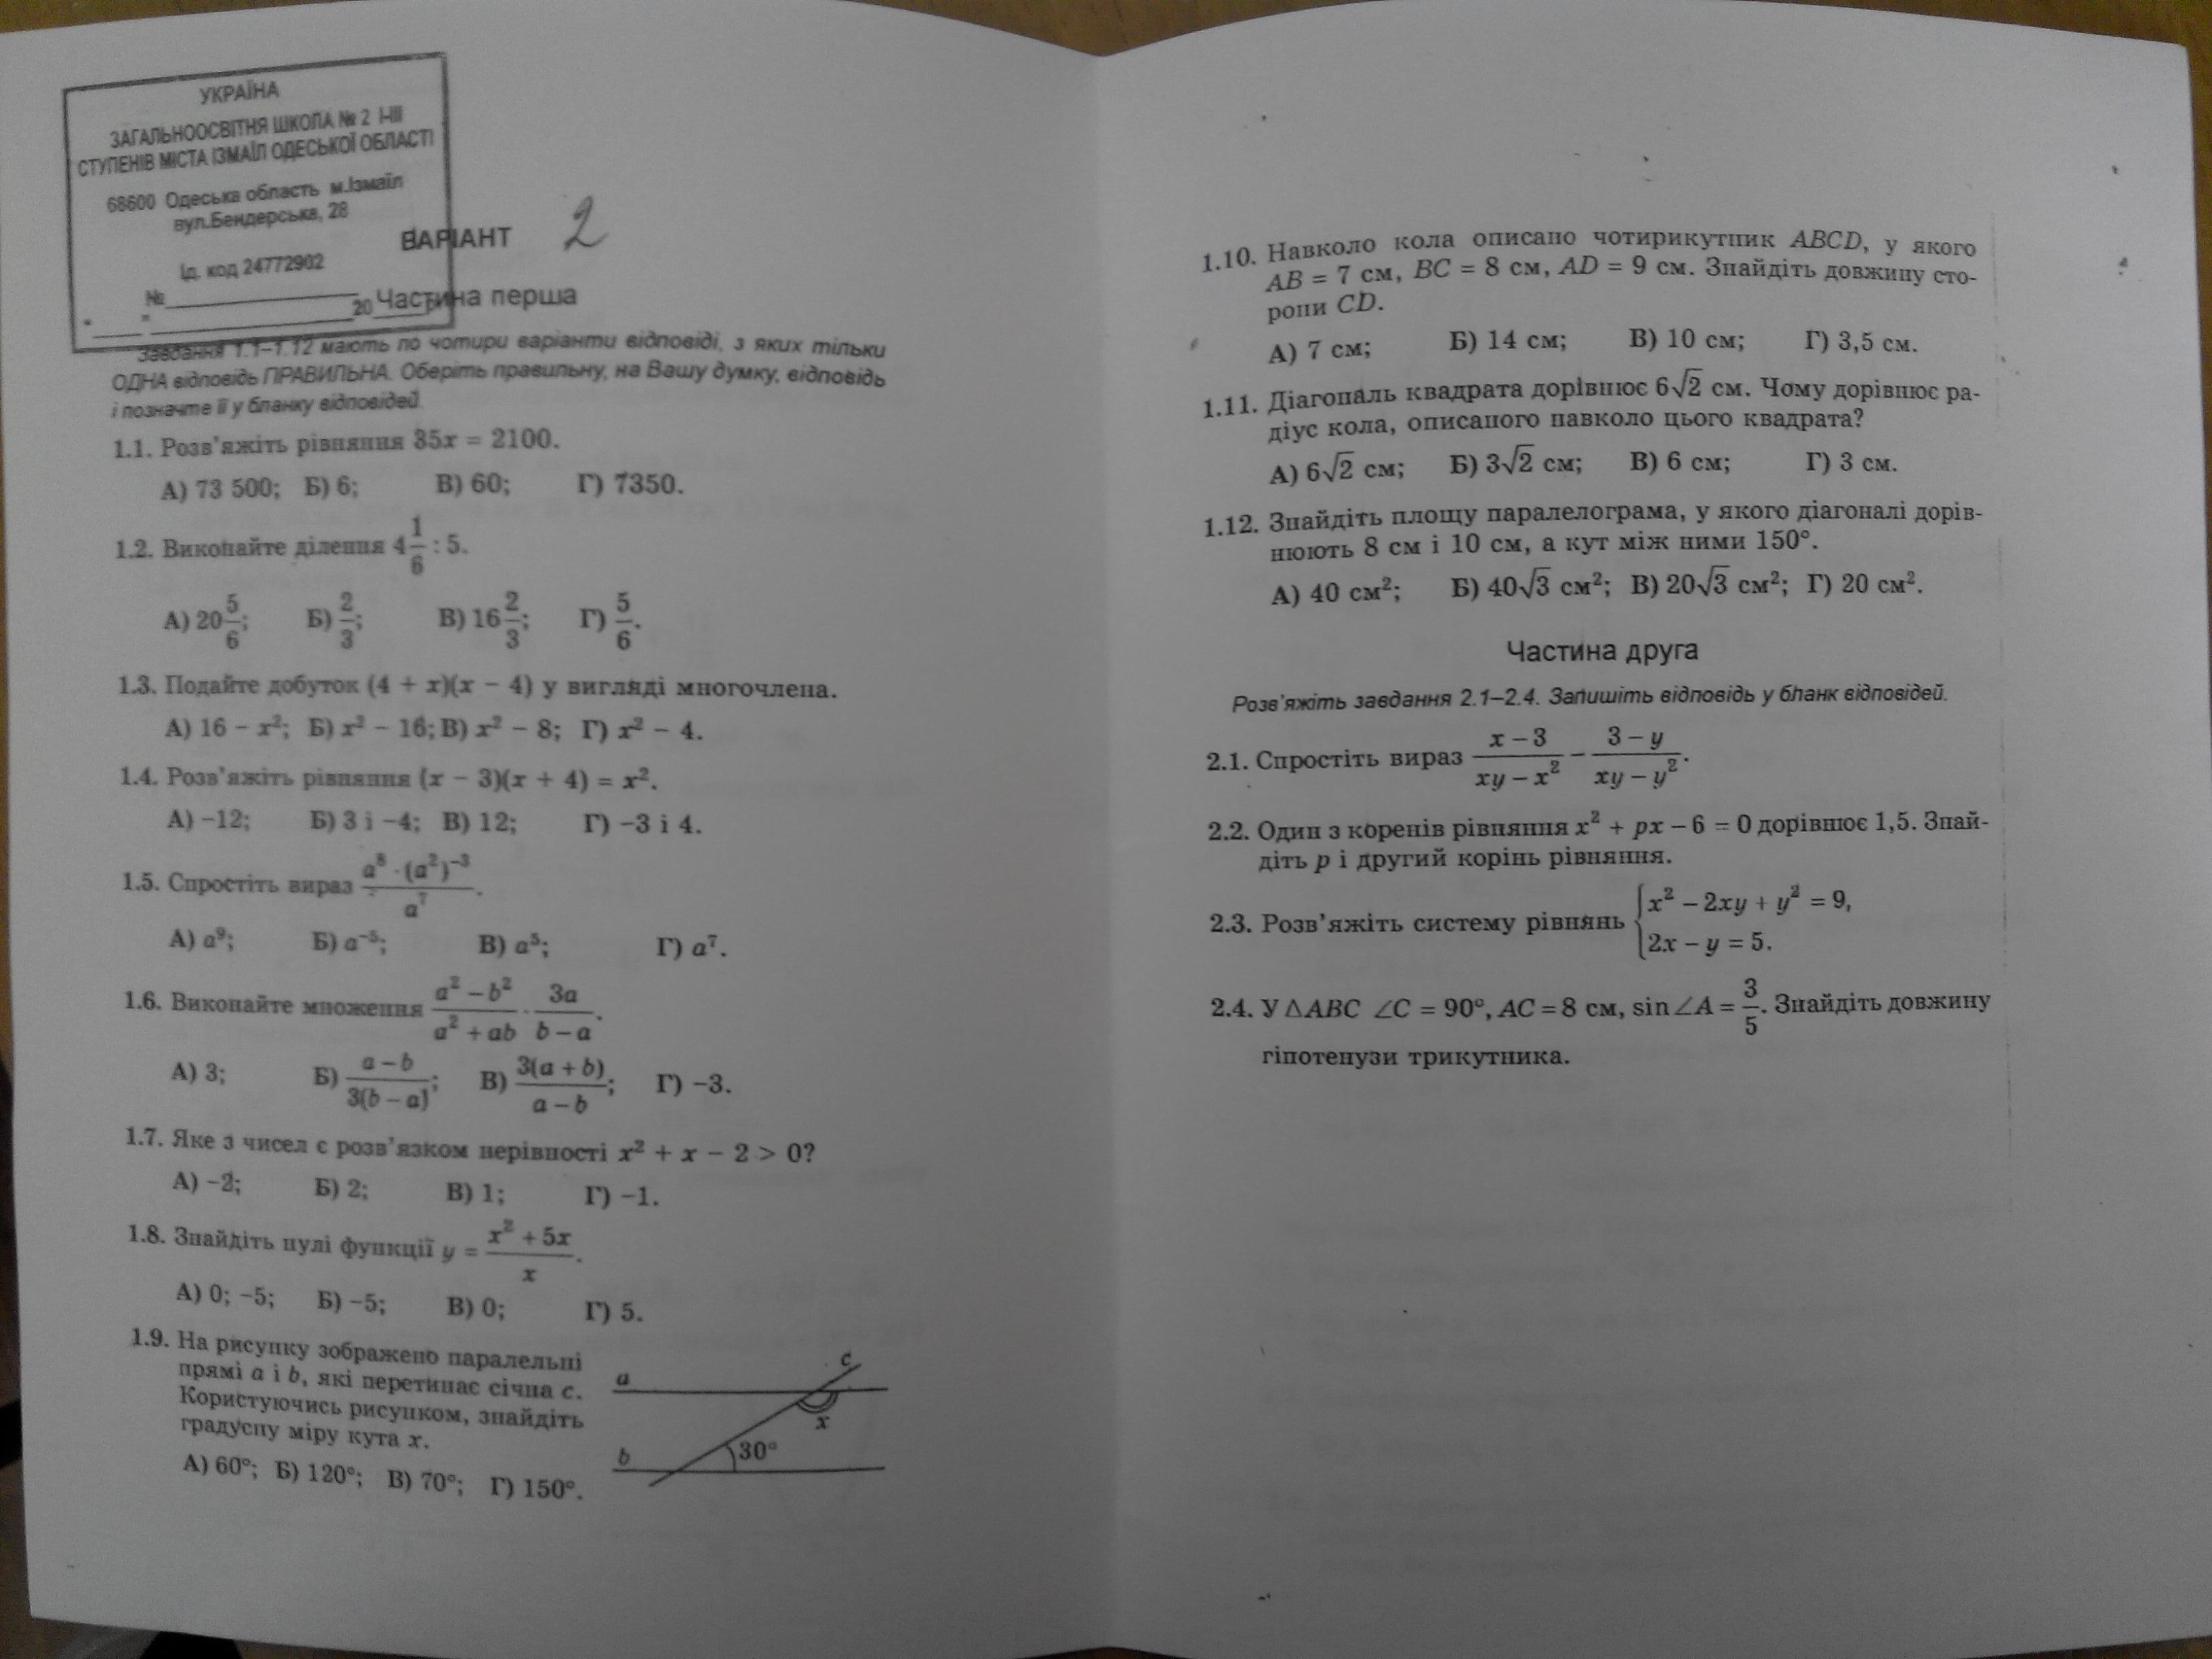 УКРАЇНА
ЗАГАЛЬНООСВІТНЯ ШКОЛА № 2 І-ІІІ
СТУПЕНІВ МІСТА ІЗМАЇЛ ОДЕСЬКОЇ ОБЛАСТІ
68600 Одеська область м.Ізмаїл
вул.Бендерська, 28
Ід. код 24772902
№
20
ВАРІАНТ 2
Частина перша
Завдання 1.1–1.12 мають по чотири варіанти відповіді, з яких тільки
ОДНА відповідь ПРАВИЛЬНА. Оберіть правильну, на Вашу думку, відповідь
і позначте її у бланку відповідей.
1.1. Розв'яжіть рівняння 35x = 2100.
А) 73 500; Б) 6; В) 60; Г) 7350.
1.2. Виконайте ділення 4 1/6 : 5.
А) 20 5/6; Б) 2/3; В) 16 2/3; Г) 5/6.
1.3. Подайте добуток (4 + x)(x − 4) у вигляді многочлена.
А) 16 − x²; Б) x² − 16; В) x² − 8; Г) x² − 4.
1.4. Розв'яжіть рівняння (x − 3)(x + 4) = x².
А) −12; Б) 3 і −4; В) 12; Г) −3 і 4.
1.5. Спростіть вираз (a⁸ · (a²)⁻³)/a⁷.
А) a⁹; Б) a⁻⁵; В) a⁵; Г) a⁷.
1.6. Виконайте множення (a² − b²)/(a² + ab) · 3a/(b − a).
А) 3; Б) (a − b)/(3(b − a)); В) (3(a + b))/(a − b); Г) −3.
1.7. Яке з чисел є розв'язком нерівності x² + x − 2 > 0?
А) −2; Б) 2; В) 1; Г) −1.
1.8. Знайдіть нулі функції y = (x² + 5x)/x.
А) 0; −5; Б) −5; В) 0; Г) 5.
1.9. На рисунку зображено паралельні
прямі a і b, які перетинає січна c.
Користуючись рисунком, знайдіть
градусну міру кута x.
А) 60°; Б) 120°; В) 70°; Г) 150°.
a
c
x
b
30°
1.10. Навколо кола описано чотирикутник ABCD, у якого
AB = 7 см, BC = 8 см, AD = 9 см. Знайдіть довжину сто-
рони CD.
А) 7 см; Б) 14 см; В) 10 см; Г) 3,5 см.
1.11. Діагональ квадрата дорівнює 6√2 см. Чому дорівнює ра-
діус кола, описаного навколо цього квадрата?
А) 6√2 см; Б) 3√2 см; В) 6 см; Г) 3 см.
1.12. Знайдіть площу паралелограма, у якого діагоналі дорів-
нюють 8 см і 10 см, а кут між ними 150°.
А) 40 см²; Б) 40√3 см²; В) 20√3 см²; Г) 20 см².
Частина друга
Розв'яжіть завдання 2.1–2.4. Запишіть відповідь у бланк відповідей.
2.1. Спростіть вираз (x − 3)/(xy − x²) − (3 − y)/(xy − y²).
2.2. Один з коренів рівняння x² + px − 6 = 0 дорівнює 1,5. Знай-
діть p і другий корінь рівняння.
2.3. Розв'яжіть систему рівнянь {x² − 2xy + y² = 9,
2x − y = 5.
2.4. У △ABC ∠C = 90°, AC = 8 см, sin∠A = 3/5. Знайдіть довжину
гіпотенузи трикутника.